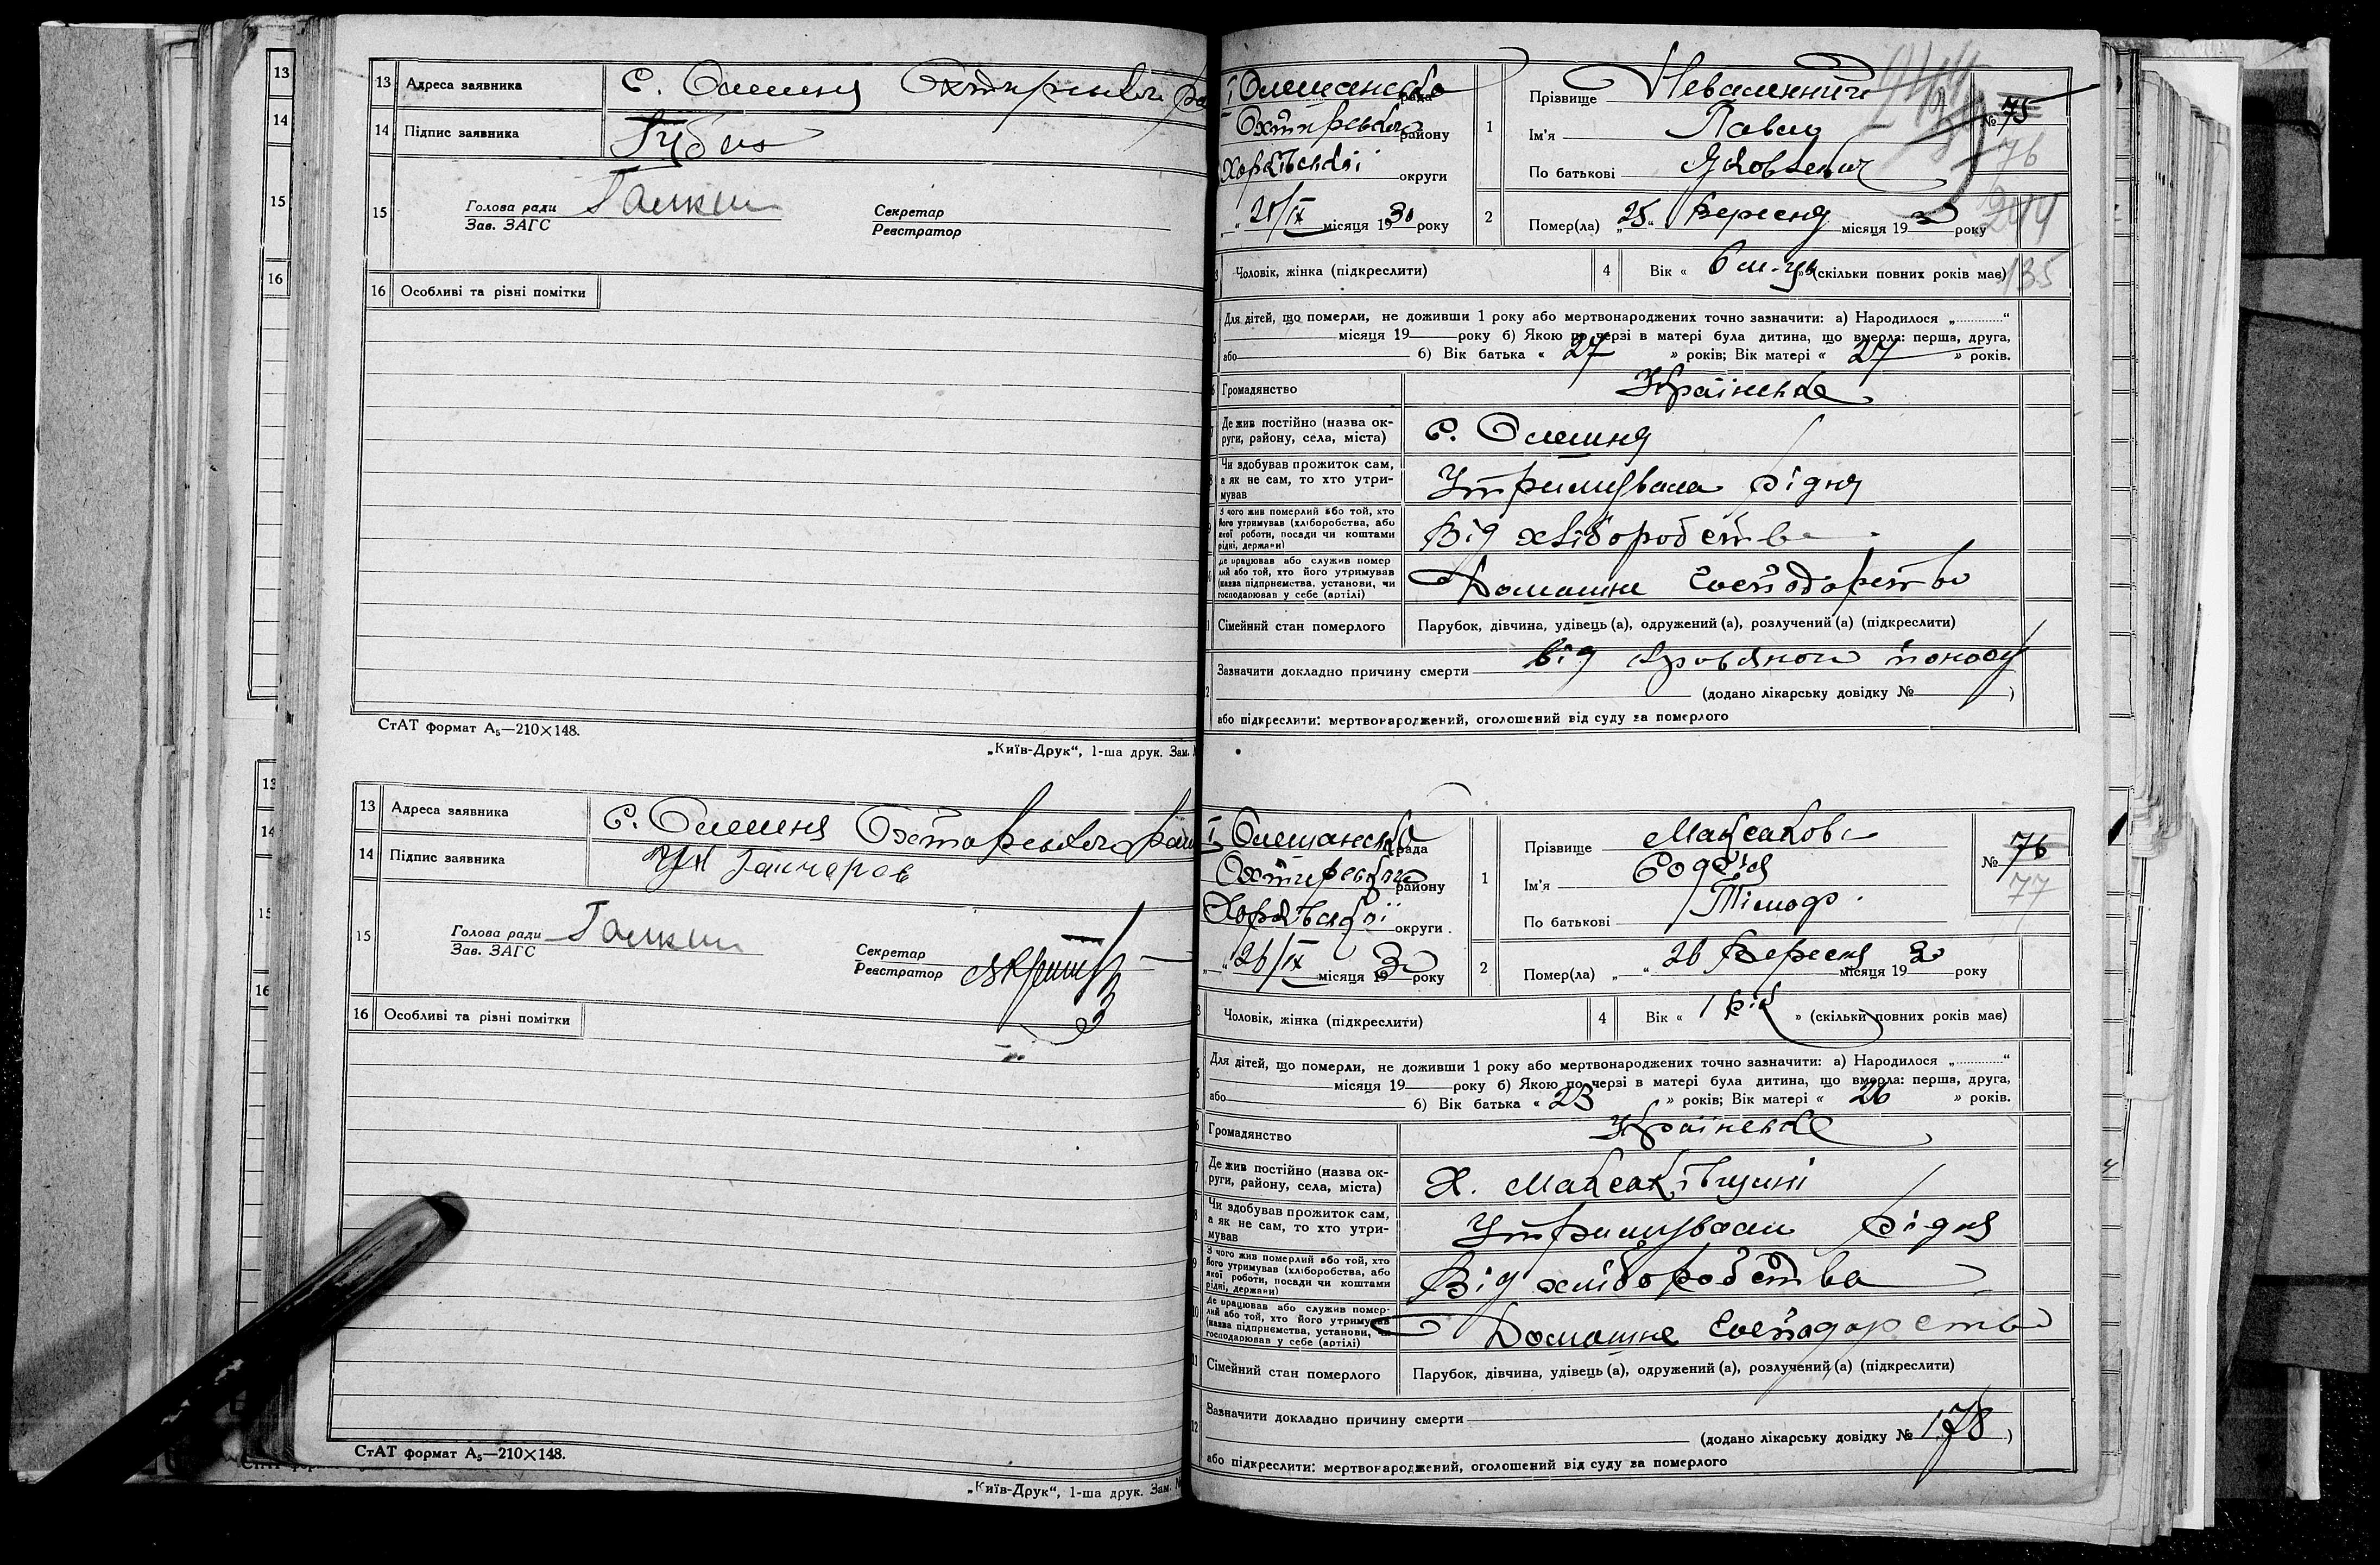 13 Адреса заявника С. Олешня Охтирського ра
14 Підпис заявника Губа
15 Голова ради Зав. ЗАГС Галкин Секретар Реєстратор
16 Особливі та різні помітки
СтАТ формат А₅—210×148.
„Київ-Друк“, 1-ша друк. Зам.
13 Адреса заявника С. Олешня Охтирського рай
14 Підпис заявника Гончаров
15 Голова ради Зав. ЗАГС Галкин Секретар Реєстратор
16 Особливі та різні помітки
СтАТ формат А₅—210×148.
„Київ-Друк“, 1-ша друк. Зам.
І Олешанська рада
Охтирського району
Харківської округи
„ “ 28/IX місяця 1930 року
1 Прізвище
Ім'я Павло
По батькові Яковлевич
№ 75
76
244
2 Помер(ла) „25“ Вересня місяця 1930 року
Чоловік, жінка (підкреслити) 4 Вік « 6 м-ц » (скільки повних років має) 135
Для дітей, що померли, не доживши 1 року або мертвонароджених точно зазначити: а) Народилося „............“
місяця 19 року б) Якою по черзі в матері була дитина, що вмерла: перша, друга,
або б) Вік батька « 27 » років; Вік матері « 27 » років.
Громадянство Українське
Де жив постійно (назва округи, району, села, міста) С. Олешня
Чи здобував прожиток сам, а як не сам, то хто утримував Утримувала рідня
З чого жив померлий або той, хто його утримував (хліборобства, або якої роботи, посади чи коштами рідні, держави) Від хліборобства
Де працював або служив померлий або той, хто його утримував (назва підприємства, установи, чи господарював у себе (артілі) Домашнє Господарство
Сімейний стан померлого Парубок, дівчина, удівець (а), одружений (а), розлучений (а) (підкреслити)
Зазначити докладно причину смерти від кровяного поносу
(додано лікарську довідку № )
або підкреслити: мертвонароджений, оголошений від суду за померлого
І Олешанська рада
Охтирського району
Харківської округи
„ “ 26/IX місяця 1930 року
1 Прізвище Максакова
Ім'я Софія
По батькові Тімоф.
№ 76
77
2 Помер(ла) „ “ 26 Вересня місяця 1930 року
Чоловік, жінка (підкреслити) 4 Вік « 1 рік » (скільки повних років має)
Для дітей, що померли, не доживши 1 року або мертвонароджених точно зазначити: а) Народилося „............“
місяця 19 року б) Якою по черзі в матері була дитина, що вмерла: перша, друга,
або б) Вік батька « 23 » років; Вік матері « 26 » років.
Громадянство Українське
Де жив постійно (назва округи, району, села, міста) Х. Максаківщині
Чи здобував прожиток сам, а як не сам, то хто утримував Утримували рідня
З чого жив померлий або той, хто його утримував (хліборобства, або якої роботи, посади чи коштами рідні, держави) Від хліборобства
10 Де працював або служив померлий або той, хто його утримував (назва підприємства, установи, чи господарював у себе (артілі) Домашнє Господарство
11 Сімейний стан померлого Парубок, дівчина, удівець (а), одружений (а), розлучений (а) (підкреслити)
12 Зазначити докладно причину смерти
(додано лікарську довідку № 178 )
або підкреслити: мертвонароджений, оголошений від суду за померлого